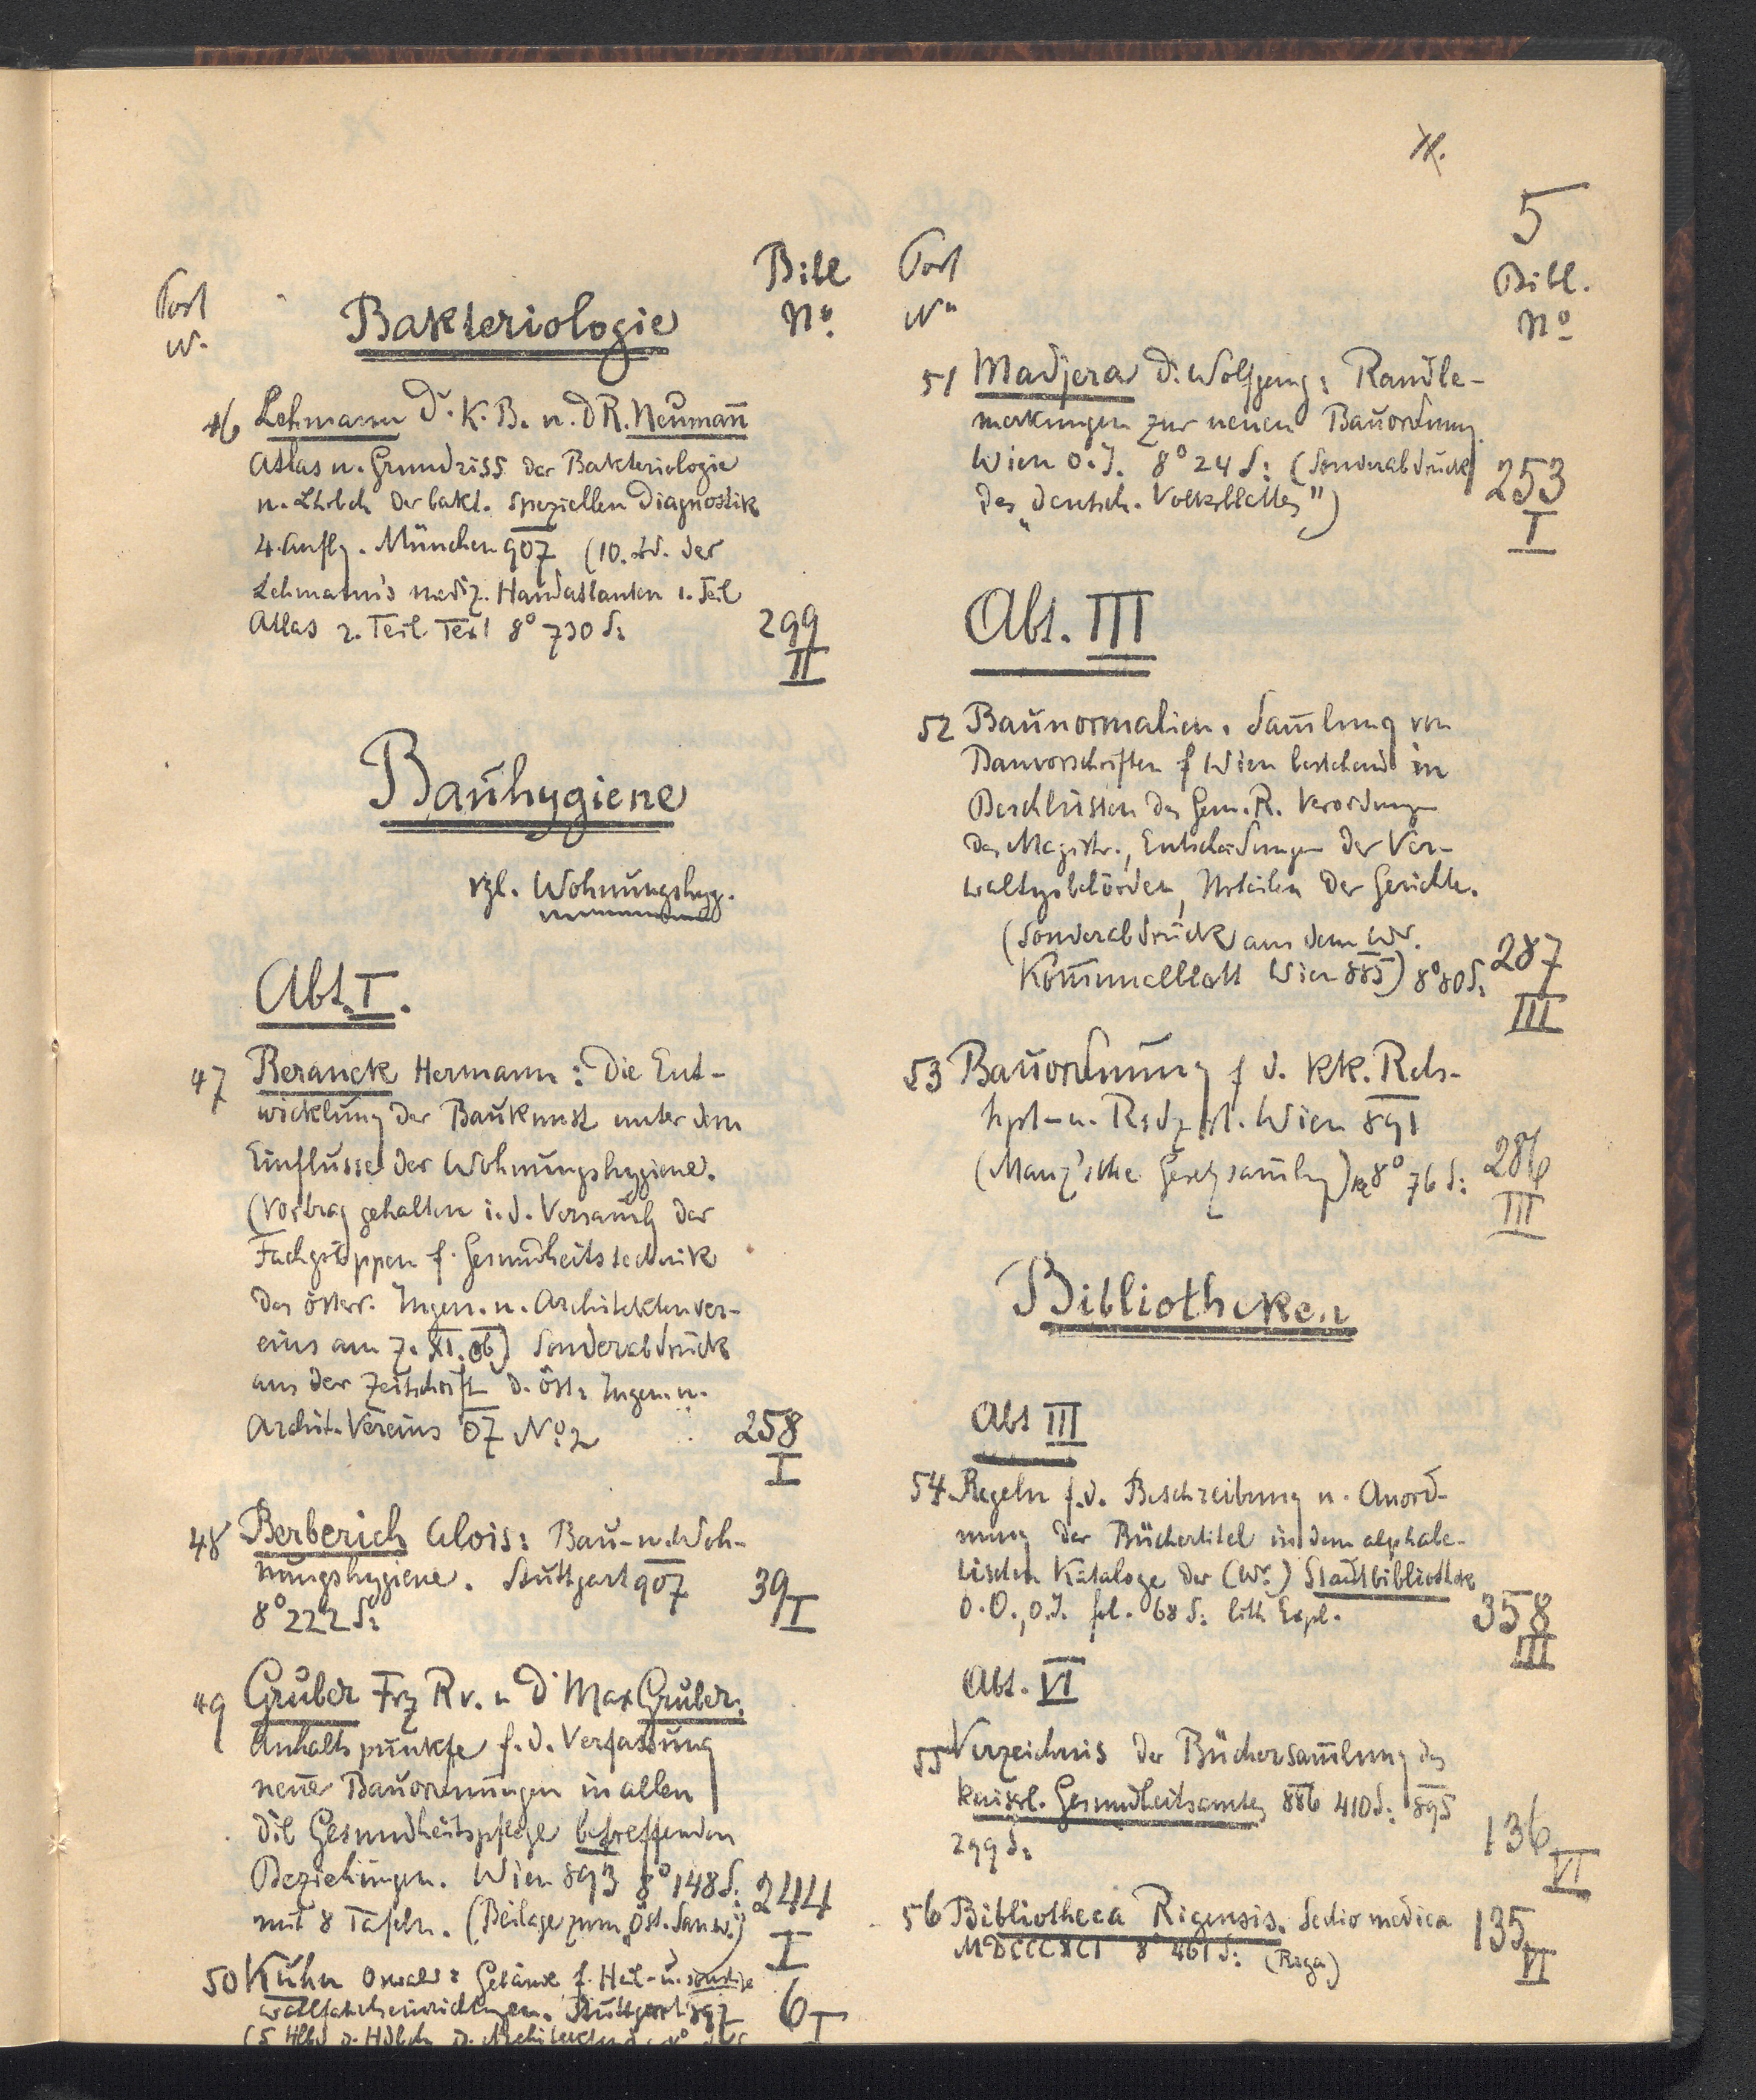 5
Post
N.
Bakteriologie
Bibl
No.
46 Lehmann Dr. K. B. u. DR. Neumann̄
Atlas u. Grundriss der Bakteriologie
u. Lhrbch der bakt. speziellen Diagnostik
4. Aufl. München 907 (10. Bd. der
Lehmann's mediz. Handatlanten 1. Teil
Atlas 2. Teil Text 8° 730 S:
299
II
Bauhygiene
vgl. Wohnungshyg.
Abt. I.
47 Beranek Hermann: Die Ent-
wicklung der Baukunst unter dem
Einflusse der Wohnungshygiene.
(Vortrag gehalten i. d. Versamlg der
Fachgruppen f. Gesundheitstechnik
des österr. Ingen. u. Architektenver-
eins am 7. XI. 06) Sonderabdruck
aus der Zeitschrift d. öst. Ingen. u.
Archit. Vereins 07 No. 2
258
I
48 Berberich Alois: Bau- u. Woh-
nungshygiene. Stuttgart 907
8° 222 S:
39
I
49 Gruber Frz R v. u Dr Max Gruber:
Anhaltspunkte f. d. Verfassung
neuer Bauordnungen in allen
die Gesundheitspflege betreffenden
Beziehungen. Wien 893 8° 148 S:
mit 8 Tafeln. (Beilage zum „Öst. Sanw.")
244
I
50 Kuhn Oswald: Gebäude f. Heil- u. sonstige
Wohlfahrtseinrichtungen. Stuttgart 897
6
I
Post
No
Bibl.
No
51 Madjera Dr. Wolfgang: Randbe-
merkungen zur neuen Bauordnung.
Wien o. J. 8° 24 S: (Sonderabdruck
des „Deutsch. Volksblattes")
253
I
Abt. III
52 Baunormalien. Sam̄lung von
Bauvorschriften f Wien bestehend in
Beschlüssen des Gem. R. Verordnungen
des Magistr., Entscheidungen der Ver-
waltgsbehörden, Urteilen der Gerichte.
(Sonderabdruck aus dem Wr.
Kom̄unalblatt Wien 885) 8° 80 S:
287
III
53 Bauordnung f d. kk. Rchs-
hpt- u. Rsdzst. Wien 891
(Manz'sche Gesetzsam̄lg) kl 8° 76 S:
286
III
Bibliotheken
Abt III
54 Regeln f. d. Beschreibung u. Anord-
nung der Büchertitel in dem alphabe-
tischen Kataloge der (Wr.) Stadtbibliothek
o. O., o. J. fol. 68 S: lith. Expl.
358
III
Abt. VI
55 Verzeichnis der Büchersam̄lung des
kaiserl. Gesundheitsamtes 886 410 S: 895
299 S:
136
VI
56 Bibliotheca Rigensis. Sectio medica
MDCCCXCI 8° 461 S: (Riga)
135
VI